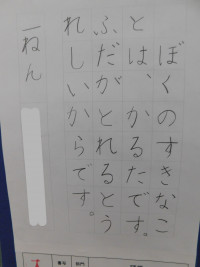 ぼくのすきなこ
とは、かるたです。
ふだがとれるとう
れしいからです。
一ねん